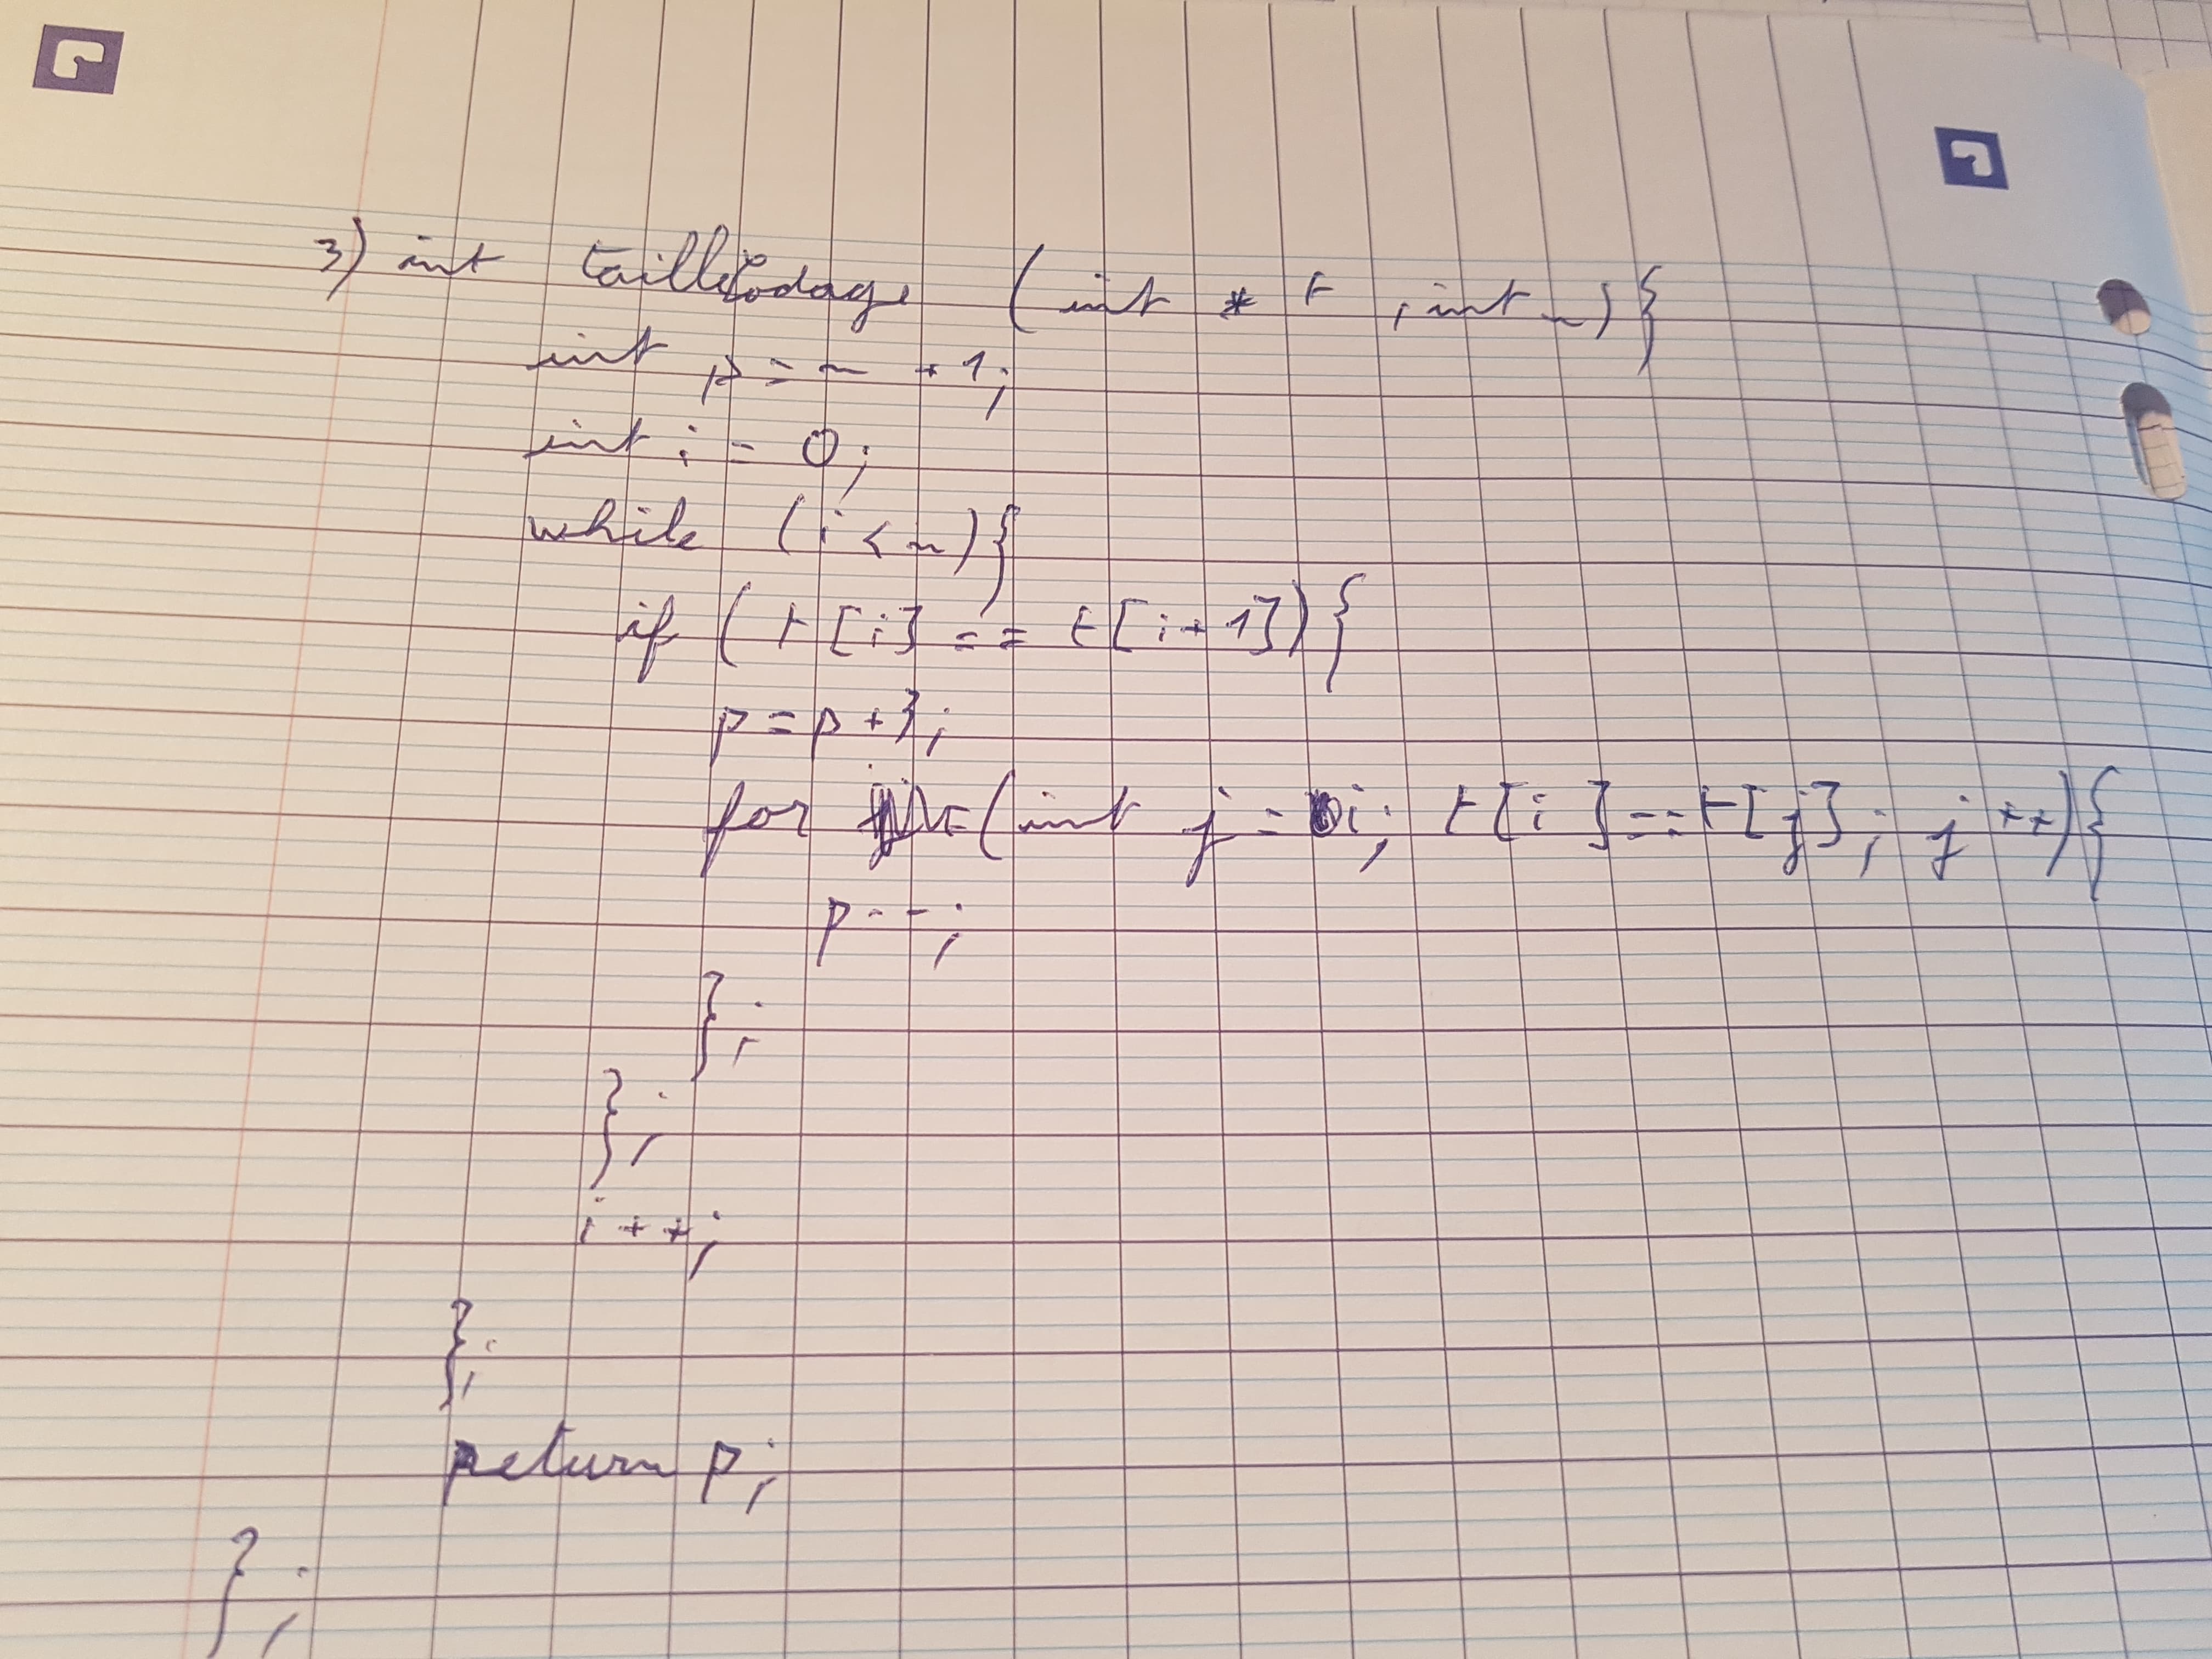 3) int tailleCodage (int * t , int n) {
int p = n + 1;
int i = 0;
while (i < n) {
if ( t [i] == t [i+1]) {
p = p + 3;
for (int j = i; t [i] == t [j]; j ++) {
p--;
};
};
i ++;
};
return p;
};